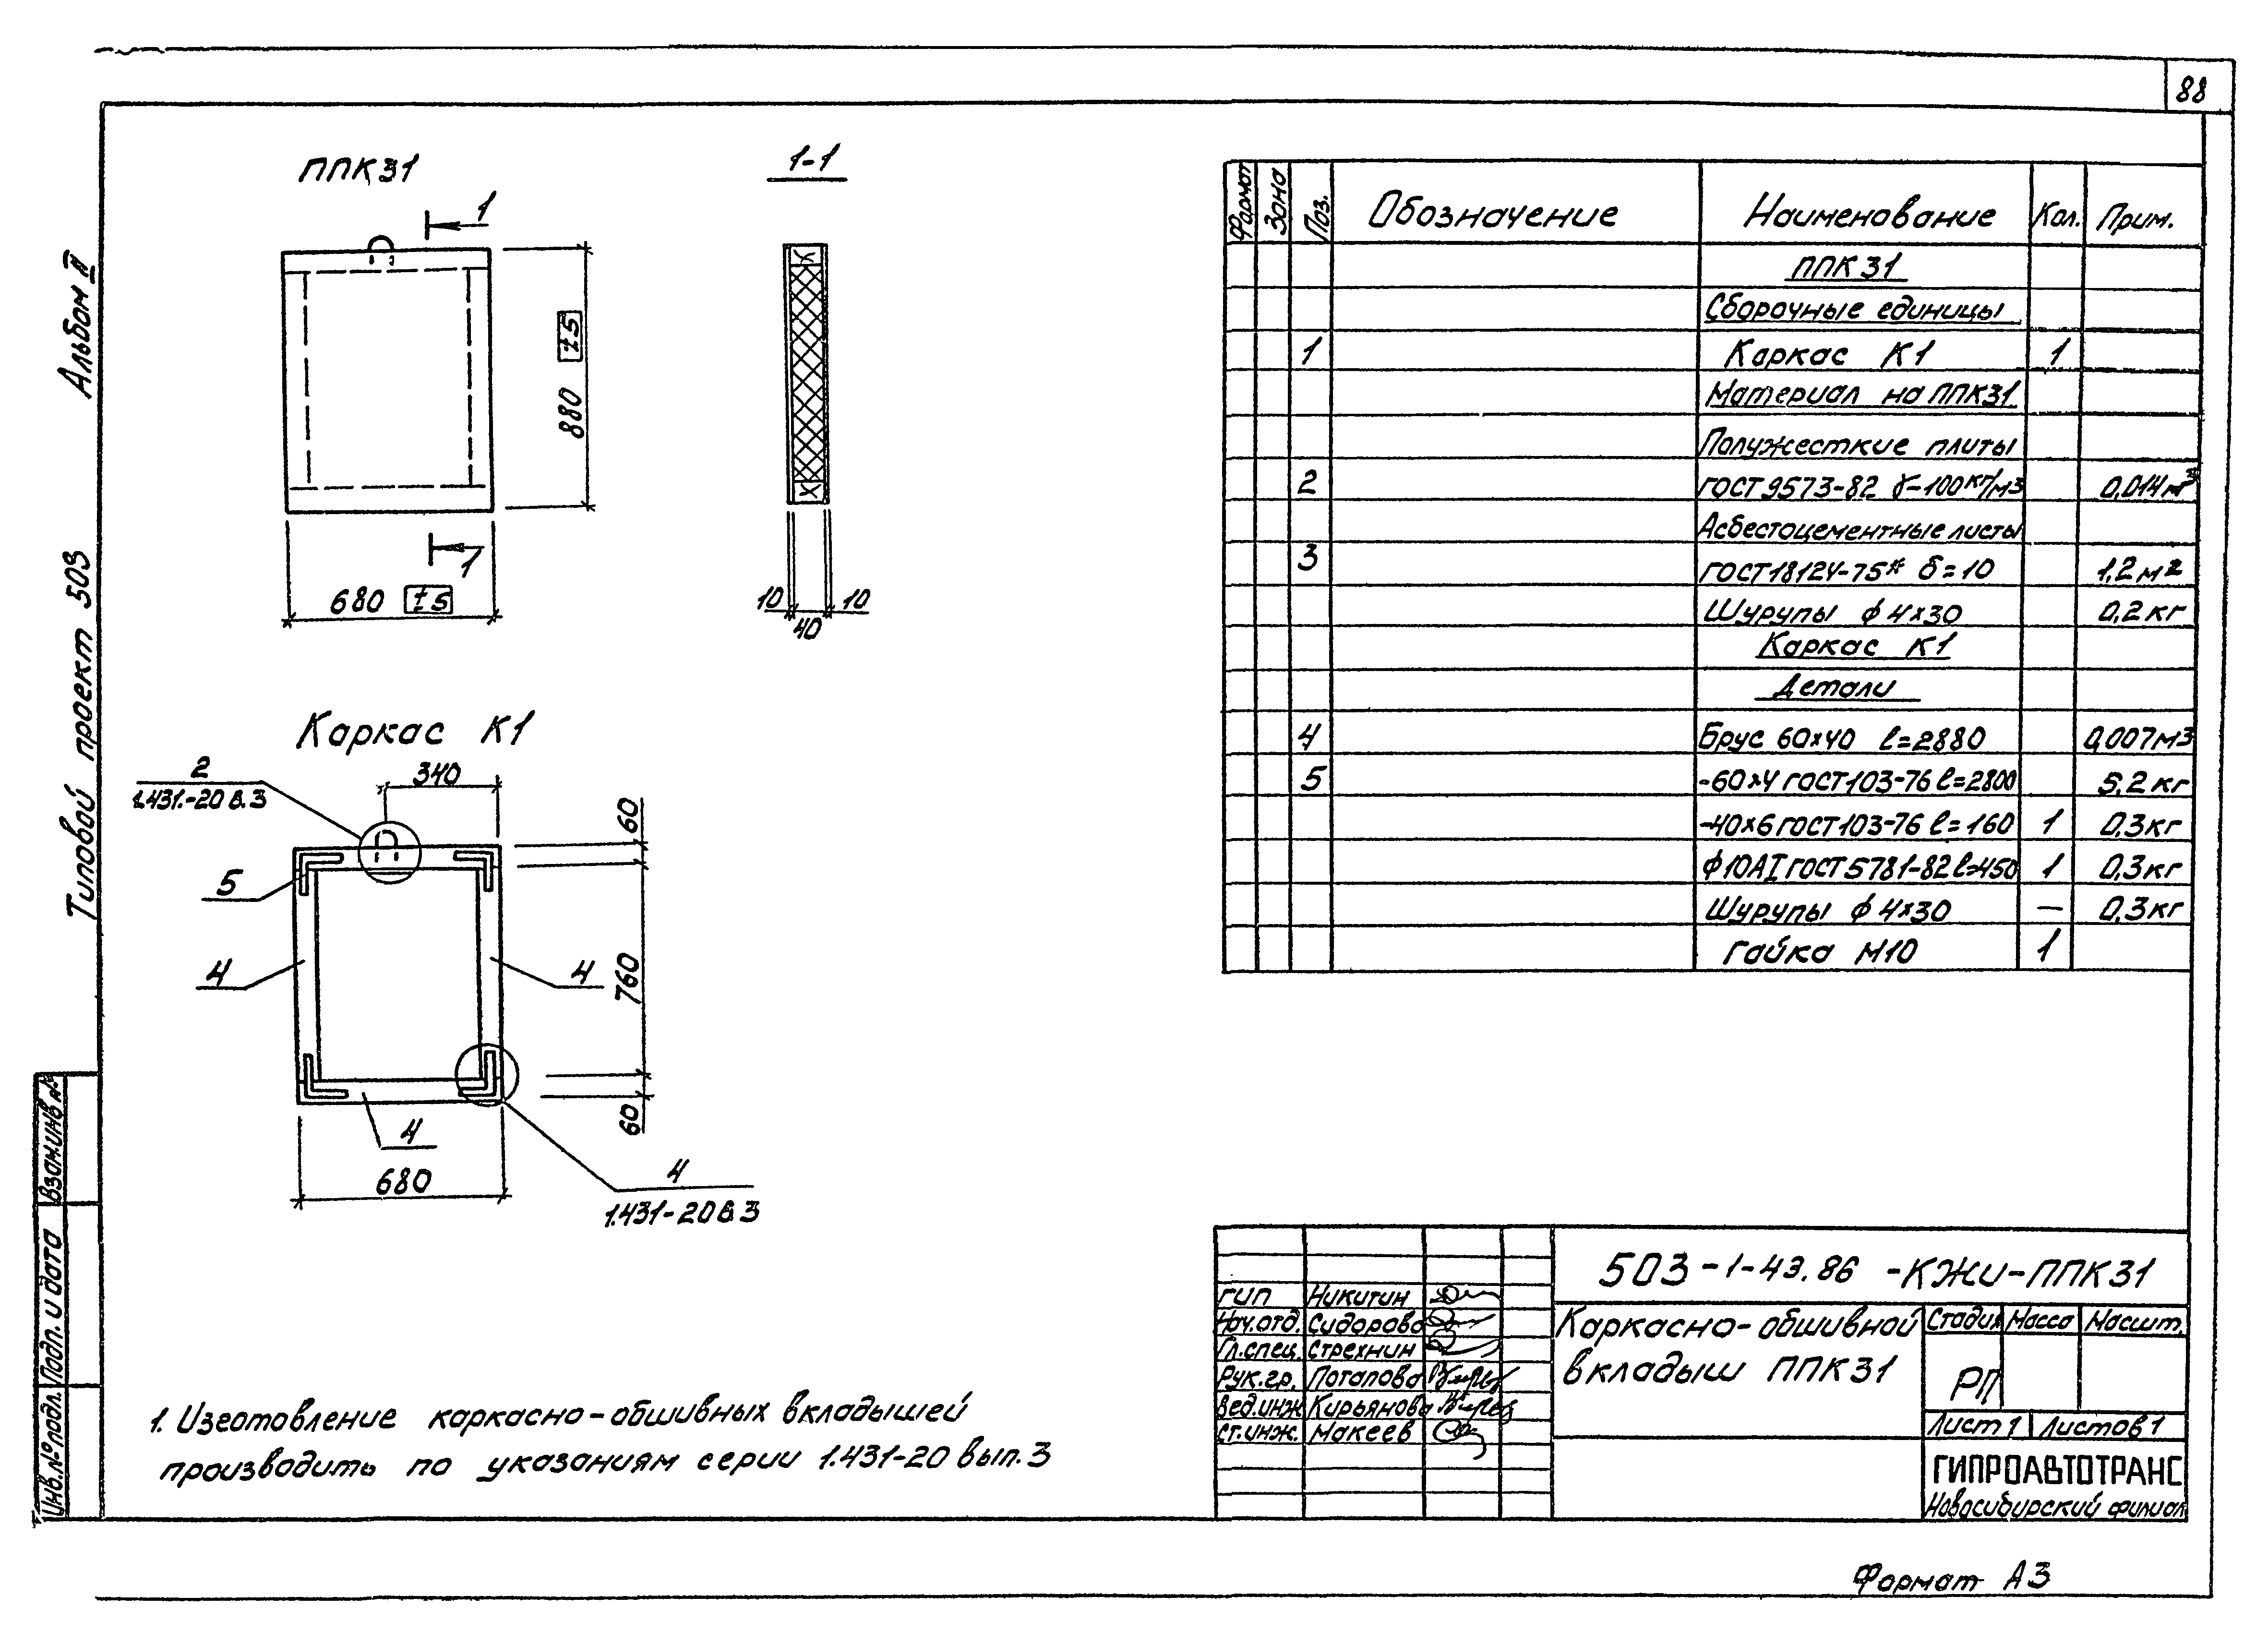 88
Альбом II
Типовой проект 503
ППК31
1
880 ±5
1
680 ±5
1-1
10 40 10
Каркас К1
2
1.431-20 в.3
340
60
5
4
4
760
60
4
680
4
1.431-20 в.3
1. Изготовление каркасно-обшивных вкладышей
производить по указаниям серии 1.431-20 вып. 3
Формат Зона Поз. Обозначение Наименование Кол. Прим.
ППК31
Сборочные единицы
1 Каркас К1 1
Материал на ППК31
Полужесткие плиты
2 ГОСТ 9573-82 γ-100кг/м3 0,014м3
Асбестоцементные листы
3 ГОСТ 18124-75* δ=10 1,2м2
Шурупы ф 4×30 0,2кг
Каркас К1
Детали
4 Брус 60×40 ℓ=2880 0,007м3
5 -60×4 ГОСТ 103-76 ℓ=2800 5,2кг
-40×6 ГОСТ 103-76 ℓ=160 1 0,3кг
ф10АI ГОСТ 5781-82 ℓ=450 1 0,3кг
Шурупы ф 4×30 — 0,3кг
Гайка М10 1
503-1-43.86 -КЖИ-ППК31
ГИП Никитин
Нач.отд. Сидорова
Гл.спец. Стрехнин
Рук.гр. Потапова
Вед.инж Кирьянова
Ст.инж. Макеев
Каркасно-обшивной
вкладыш ППК31
Стадия Масса Масшт.
РП
Лист 1 Листов 1
ГИПРОАВТОТРАНС
Новосибирский филиал
Инв.№подл. Подп. и дата Взам.инв.№
Формат А3